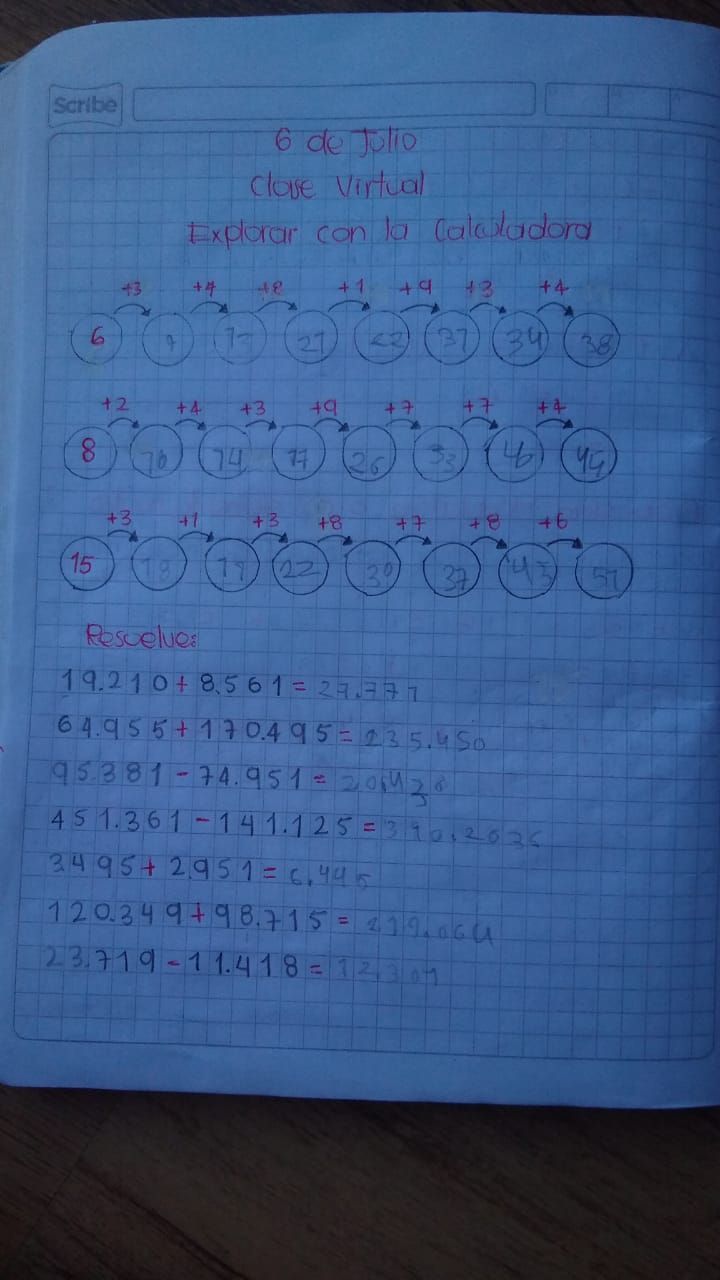 Scribe
6 de Julio
Clase Virtual
Explorar con la Calculadora
+3 +4 +8 +1 +9 +3 +4
6 9 13 21 22 31 34 38
+2 +4 +3 +9 +7 +7 +4
8 10 14 17 26 33 40 44
+3 +1 +3 +8 +7 +8 +6
15 18 19 22 30 37 45 51
Resuelve:
19.210 + 8.561 = 27.771
64.955 + 170.495 = 235.450
95.381 - 74.951 = 20.430
451.361 - 141.125 =
3.495 + 2.951 =
120.349 + 98.715 = 219.064
23.719 - 11.418 = 12.301